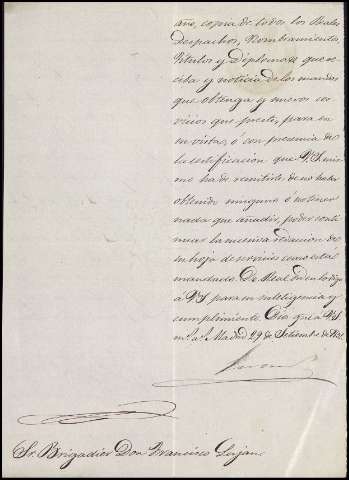 año, copia de todos los Reales
Despachos, Nombramientos,
Titulos y Diplomas que re
ciba y noticia de los mandos
que obtenga y nuevos ser
vicios que preste, para en
su vista, ó con presencia de
la certificacion que V.S.
ha de remitirle de no haber
obtenido ninguno ó no tener
nada que añadir, poder conti
nuar la necesaria redaccion de
su hoja de servicios como está
mandado. De Real orden lo digo
á V.S. para su inteligencia y
cumplimiento. Dios gue á V.S.
m.s a.s Madrid 29 de Setiembre de
Sr. Brigadier Don Francisco Lujan